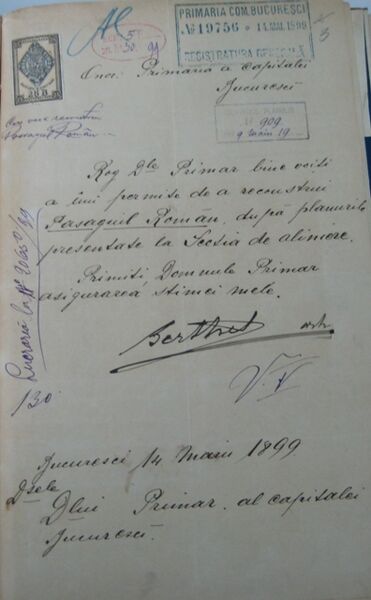 PRIMARIA COM. BUCURESCI
No 19756 * 14. MAI. 1899
REGISTRATURA GENERALA
No 909
9 Maiu 19
Onor. Primaria a capitalei
Bucuresci
Pasagiul Român
Rog Dle Primar bine voiți
a'mi permite de a reconstrui
Pasagiul Român, după planurile
presentate la Secția de aliniere.
Primiți, Domnule Primar
asigurarea stimei mele.
Berthet arh
V. V
Lucrarea la No
130
Bucuresci 14 Maiu 1899
Dsele
Dlui Primar al capitalei
Bucuresci